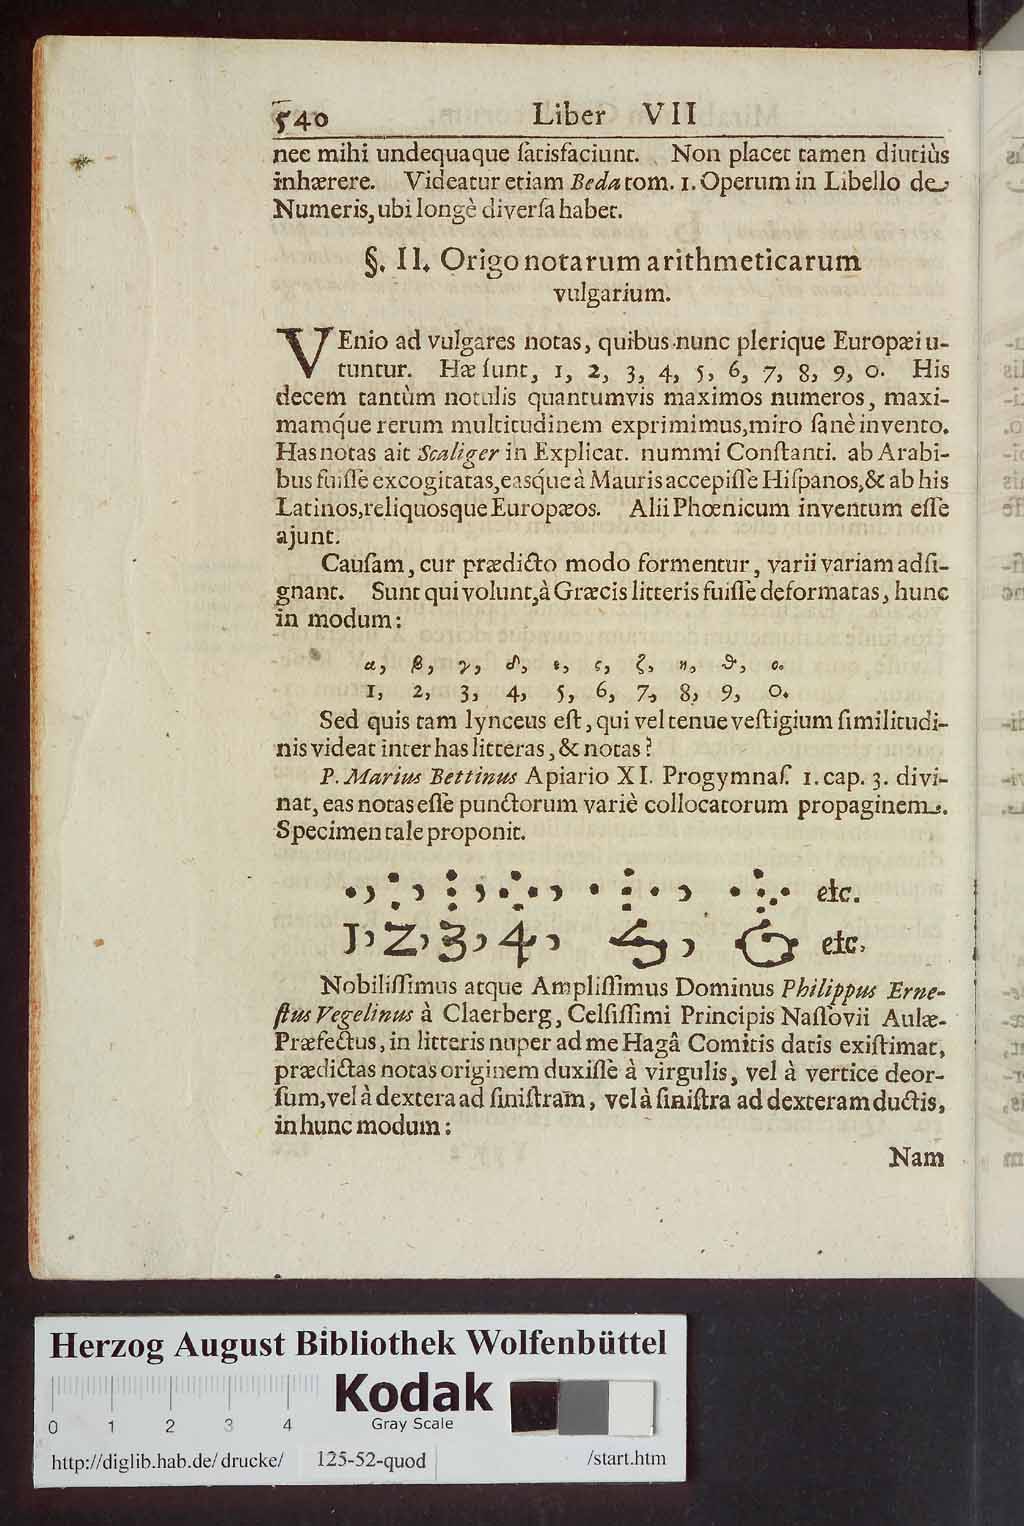 540 Liber VII
nec mihi undequaque ſatisfaciunt. Non placet tamen diutiùs
inhærere. Videatur etiam Beda tom. 1. Operum in Libello de
Numeris, ubi longè diverſa habet.
§. II. Origo notarum arithmeticarum
vulgarium.
VEnio ad vulgares notas, quibus nunc plerique Europæi u-
tuntur. Hæ ſunt, 1, 2, 3, 4, 5, 6, 7, 8, 9, 0. His
decem tantùm notulis quantumvis maximos numeros, maxi-
mamq́ue rerum multitudinem exprimimus, miro ſanè invento.
Has notas ait Scaliger in Explicat. nummi Conſtanti. ab Arabi-
bus fuiſſe excogitatas, easq́ue à Mauris accepiſſe Hiſpanos, & ab his
Latinos, reliquosque Europæos. Alii Phœnicum inventum eſſe
ajunt.
Cauſam, cur prædicto modo formentur, varii variam adſi-
gnant. Sunt qui volunt, à Græcis litteris fuiſſe deformatas, hunc
in modum:
α, β, γ, δ, ε, ς, ζ, η, ϑ, ο.
1, 2, 3, 4, 5, 6, 7, 8, 9, 0.
Sed quis tam lynceus eſt, qui vel tenue veſtigium ſimilitudi-
nis videat inter has litteras, & notas?
P. Marius Bettinus Apiario XI. Progymnaſ. 1. cap. 3. divi-
nat, eas notas eſſe punctorum variè collocatorum propaginem.
Specimen tale proponit.
etc.
1, 2, 3, 4, 5, 6 etc.
Nobiliſſimus atque Ampliſſimus Dominus Philippus Erne-
ſtus Vegelinus à Claerberg, Celſiſſimi Principis Naſſovii Aulæ-
Præfectus, in litteris nuper ad me Hagâ Comitis datis exiſtimat,
prædictas notas originem duxiſſe à virgulis, vel à vertice deor-
ſum, vel à dextera ad ſiniſtram, vel à ſiniſtra ad dexteram ductis,
in hunc modum:
Nam
Herzog August Bibliothek Wolfenbüttel
0 1 2 3 4
Kodak
Gray Scale
http://diglib.hab.de/drucke/ 125-52-quod /start.htm